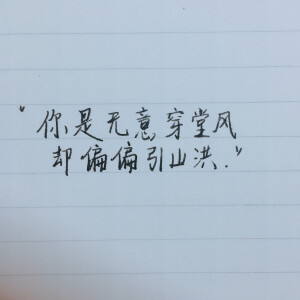 “你是无意穿堂风
却偏偏引山洪.”